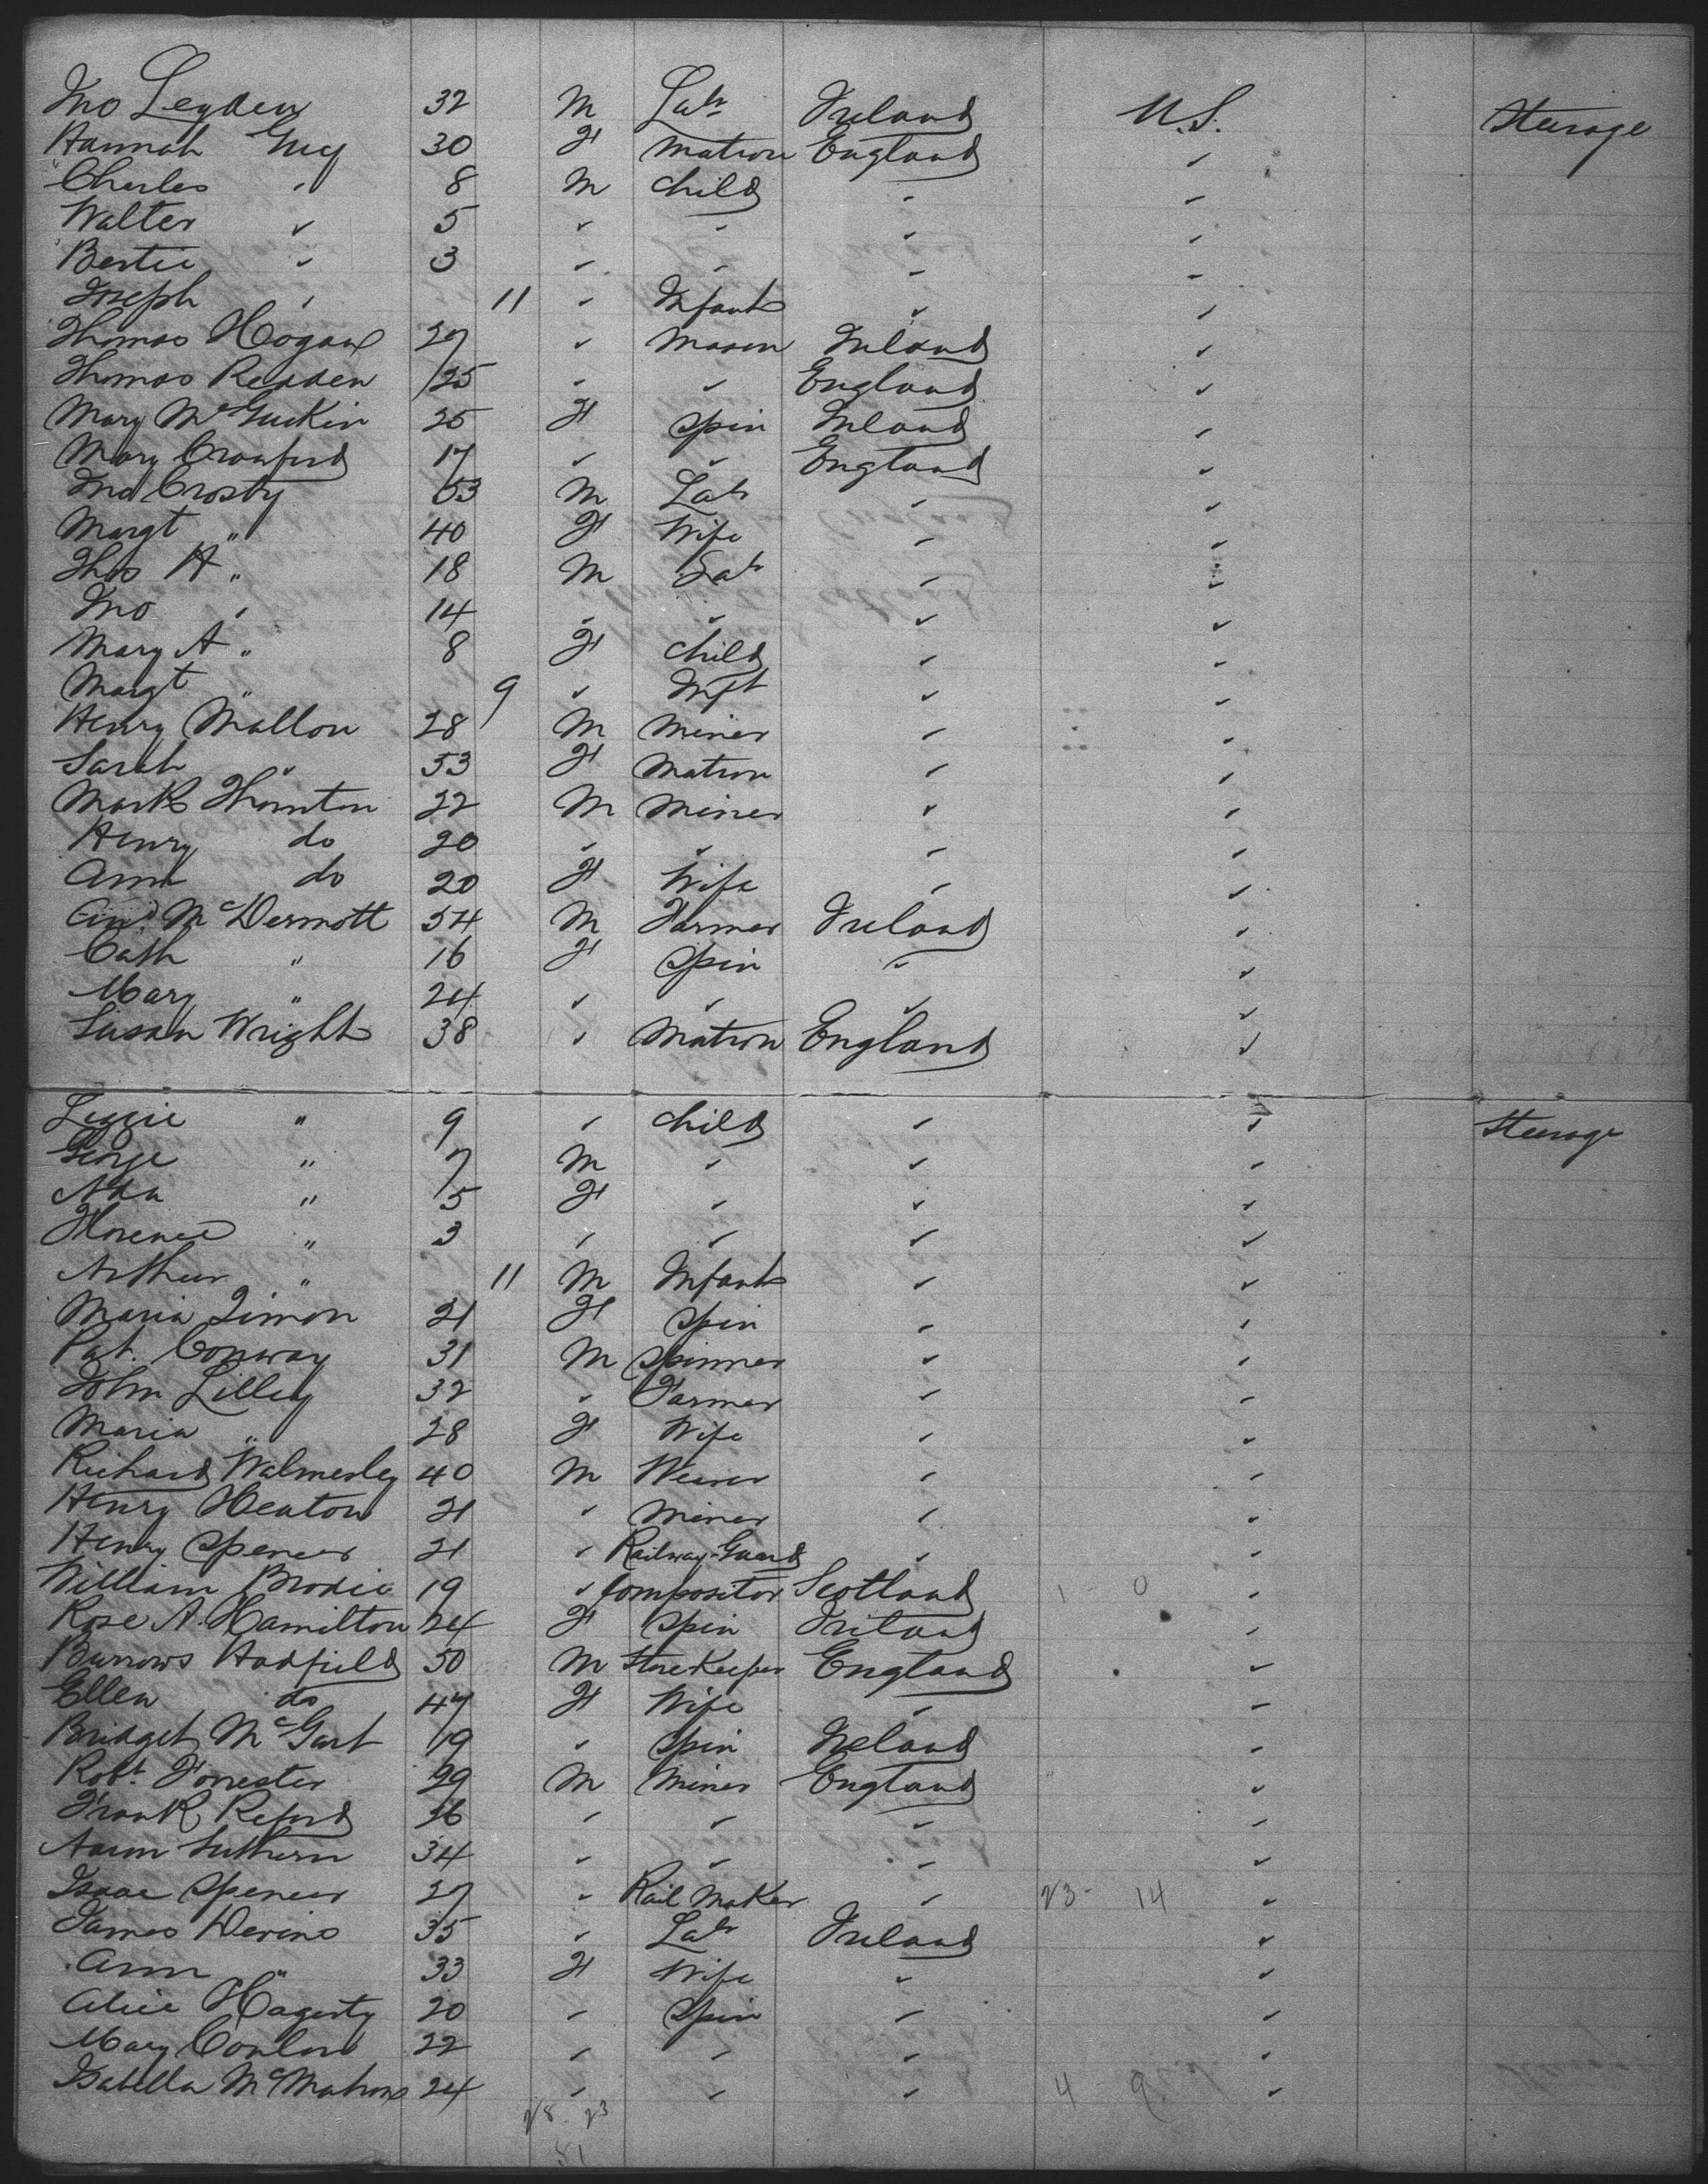 Jno Leyden 32 M Labr Ireland U.S. Steerage
Hannah Guy 30 F Matron England "
Charles " 8 M Child " "
Walter " 5 " " " "
Bertie " 3 " " " "
Joseph " 11 " Infant " "
Thomas Hogan 27 " Mason Ireland "
Thomas Redden 25 " " England "
Mary McGuckin 25 F Spin Ireland "
Mary Crawford 17 " " England "
Jno Crosby 53 M Labr " "
Margt " 40 F Wife " "
Thos H " 18 M Labr " "
Jno " 14 " " " "
Mary A " 8 F Child " "
Margt " 9 " Inft " "
Henry Mallon 28 M Miner " "
Sarah " 53 F Matron " "
Mark Thornton 22 M Miner " "
Henry do 20 " " " "
Ann do 20 F Wife " "
McDermott 54 M Farmer Ireland "
Cath " 16 F Spin " "
Mary " 24 " " " "
Susan Wright 38 " Matron England "
Lizzie " 9 " Child " " Steerage
George " 7 M " " "
Ada " 5 F " " "
Florence " 3 " " " "
Arthur " 11 M Infant " "
Maria Simon 21 F Spin " "
Pat. Conway 31 M Spinner " "
John Lilley 32 " Farmer " "
Maria " 28 F Wife " "
Richard Walmesley 40 M Weaver " "
Henry Heaton 21 " Miner " "
Henry Spencer 21 " Railway-Guard " "
William Brodie 19 " Compositor Scotland 1 0 "
Rose A. Hamilton 24 F Spin Ireland "
Burrows Hadfield 50 M Storekeeper England "
Ellen do 47 F Wife " "
Bridget McGart 19 " Spin Ireland "
Robt. Forrester 29 M Miner England "
Frank Reford 26 " " " "
Aaron Suthern 34 " " " "
Isaac Spencer 27 " Rail Maker " 23 - 14 "
James Devine 35 " Labr Ireland "
Ann " 33 F Wife " "
Alice Hagerty 20 " Spin " "
Mary Conlon 22 " " " "
Isabella McMahon 24 " " " 4 - 9 "
28 . 23
51